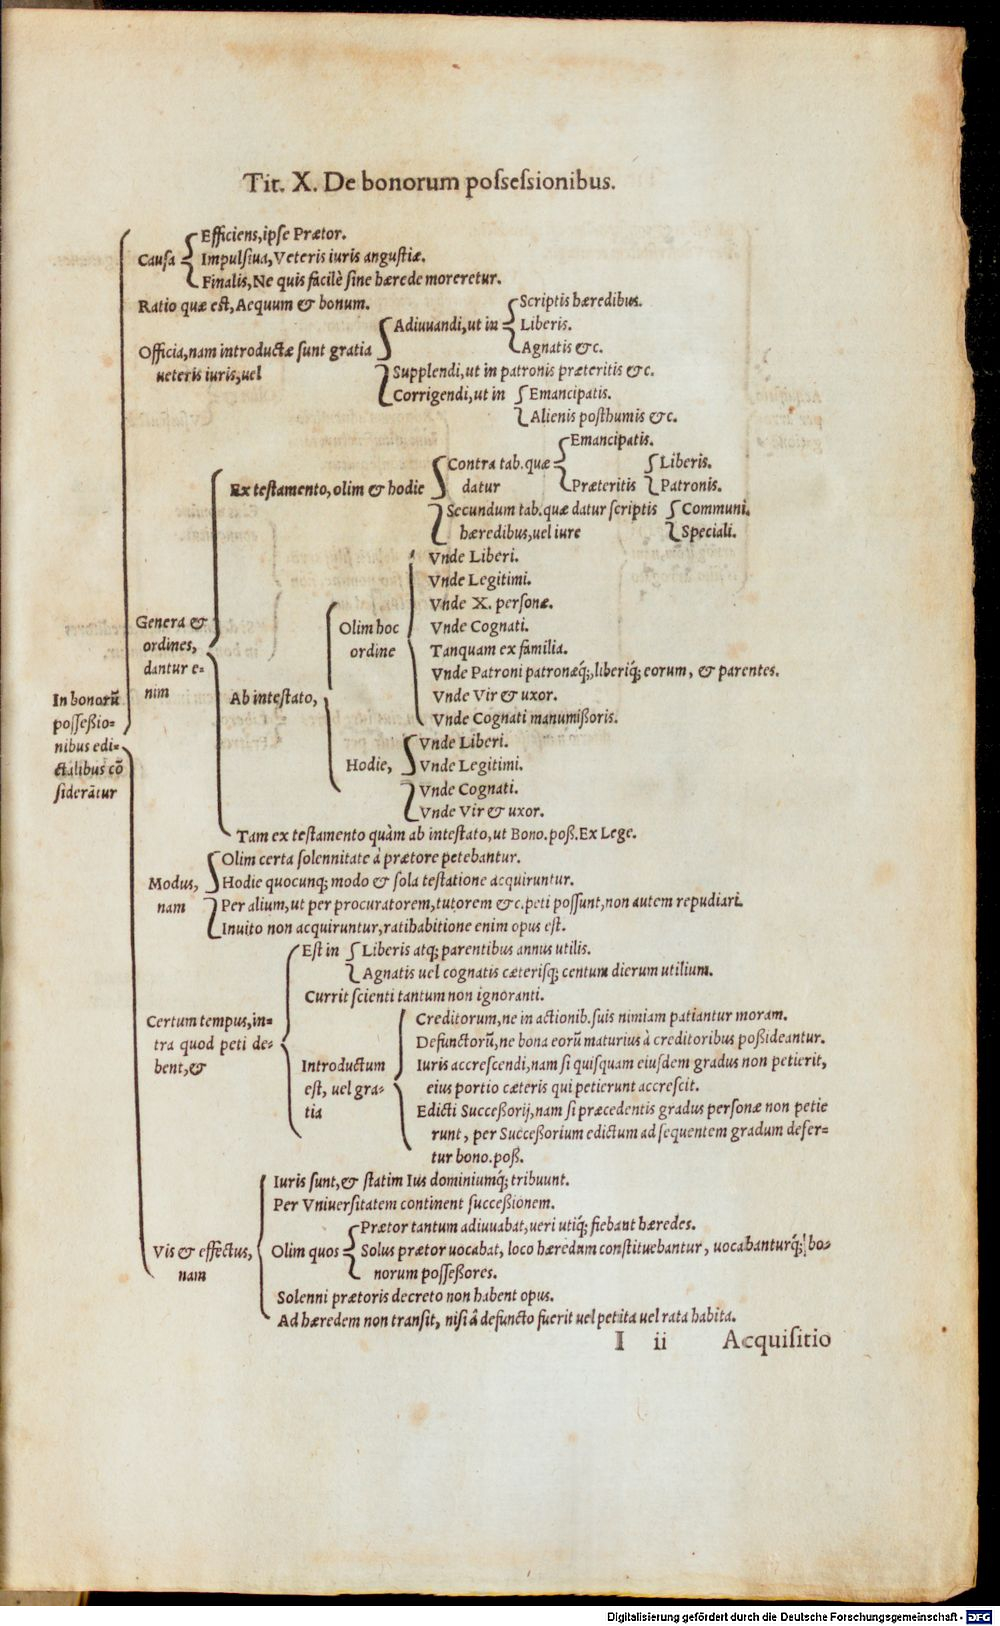 Tit. X. De bonorum possessionibus.
Efficiens, ipse Prætor.
Causa
Impulsiua, Veteris iuris angustiæ.
Finalis, Ne quis facilè sine hærede moreretur.
Ratio quæ est, Aequum & bonum.
Scriptis hæredibus.
Adiuuandi, ut in
Liberis.
Officia, nam introductæ sunt gratia
Agnatis &c.
ueteris iuris, uel
Supplendi, ut in patronis præteritis &c.
Corrigendi, ut in
Emancipatis.
Alienis posthumis &c.
Emancipatis.
Contra tab. quæ
datur
Præteritis
Liberis.
Patronis.
Ex testamento, olim & hodie
Secundum tab. quæ datur scriptis
hæredibus, uel iure
Communi.
Speciali.
Vnde Liberi.
Vnde Legitimi.
Vnde X. personæ.
Genera &
ordines,
dantur e-
nim
Olim hoc
ordine
Vnde Cognati.
Tanquam ex familia.
Vnde Patroni patronæq́;, liberiq́; eorum, & parentes.
Vnde Vir & uxor.
Vnde Cognati manumißoris.
Ab intestato,
In bonorũ
poßeßio-
nibus edi-
ctalibus cõ
siderãtur
Hodie,
Vnde Liberi.
Vnde Legitimi.
Vnde Cognati.
Vnde Vir & uxor.
Tam ex testamento quàm ab intestato, ut Bono. poß. Ex Lege.
Olim certa solennitate à prætore petebantur.
Modus,
nam
Hodie quocunq; modo & sola testatione acquiruntur.
Per alium, ut per procuratorem, tutorem &c. peti possunt, non autem repudiari.
Inuito non acquiruntur, ratihabitione enim opus est.
Est in
Liberis atq; parentibus annus utilis.
Agnatis uel cognatis cæterisq; centum dierum utilium.
Currit scienti tantum non ignoranti.
Certum tempus, in-
tra quod peti de-
bent, &
Introductum
est, uel gra-
tia
Creditorum, ne in actionib. suis nimiam patiantur moram.
Defunctorũ, ne bona eorũ maturius à creditoribus poßideantur.
Iuris accrescendi, nam si quisquam eiusdem gradus non petierit,
eius portio cæteris qui petierunt accrescit.
Edicti Succeßorij, nam si præcedentis gradus personæ non petie
runt, per Succeßorium edictum ad sequentem gradum defer-
tur bono. poß.
Iuris sunt, & statim Ius dominiumq́; tribuunt.
Per Vniuersitatem continent succeßionem.
Vis & effectus,
nam
Olim quos
Prætor tantum adiuuabat, ueri utiq́; fiebant hæredes.
Solus prætor uocabat, loco hæredum constituebantur, uocabanturq́; bo-
norum posseßores.
Solenni prætoris decreto non habent opus.
Ad hæredem non transit, nisi â defuncto fuerit uel petita uel rata habita.
I ii
Acquisitio
Digitalisierung gefördert durch die Deutsche Forschungsgemeinschaft - DFG